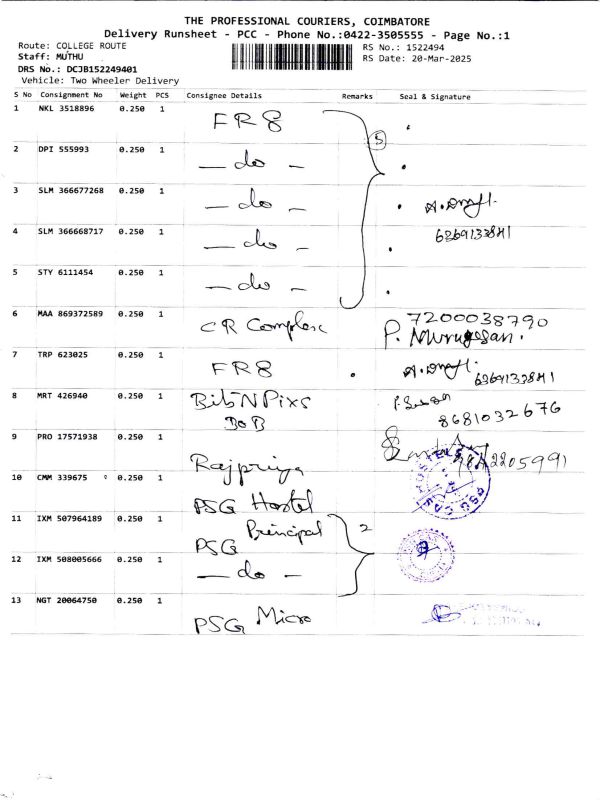 THE PROFESSIONAL COURIERS, COIMBATORE
Delivery Runsheet - PCC - Phone No.:0422-3505555 - Page No.:1
Route: COLLEGE ROUTE
RS No.: 1522494
Staff: MUTHU
RS Date: 20-Mar-2025
DRS No.: DCJB152249401
Vehicle: Two Wheeler Delivery
S No Consignment No Weight PCS Consignee Details Remarks Seal & Signature
1 NKL 3518896 0.250 1 FR8
5
2 DPI 555993 0.250 1 — do —
3 SLM 366677268 0.250 1 — do —
4 SLM 366668717 0.250 1 — do —
5 STY 6111454 0.250 1 — do —
6 MAA 869372589 0.250 1 CR Complex 7200038790
P. Murugesan.
7 TRP 623025 0.250 1 FR8
8 MRT 426940 0.250 1 BitsNPixs
BOB
8681032676
9 PRO 17571938 0.250 1 Rajpriya
10 CMM 339675 0.250 1 PSG Hostel
11 IXM 507964189 0.250 1 PSG Principal 2
12 IXM 508005666 0.250 1 — do —
13 NGT 20064750 0.250 1 PSG Micro